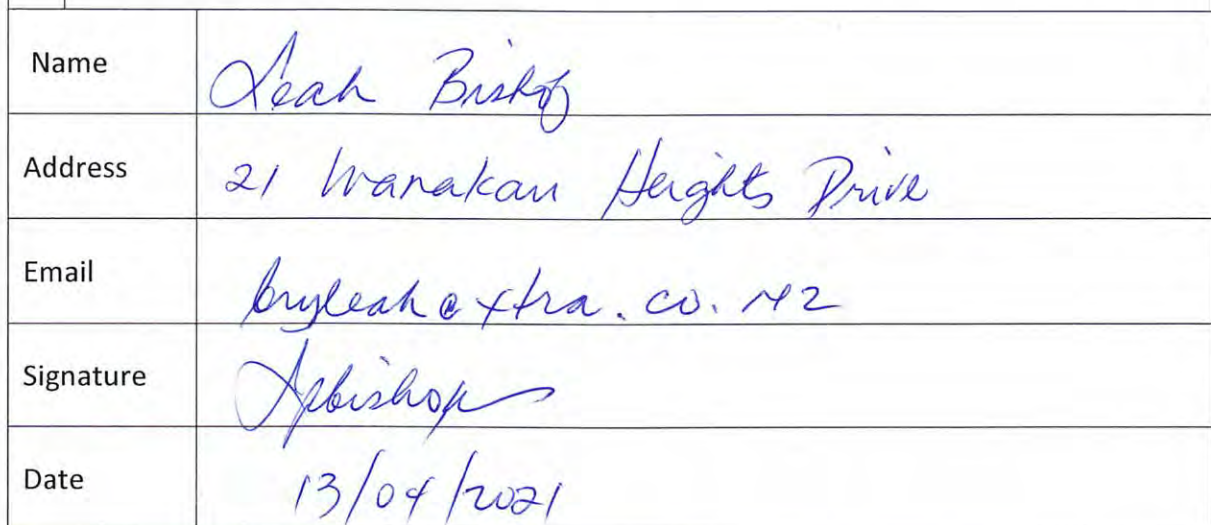 Name Leah Bishop
Address 21 Wanakau Heights Drive
Email bryleah@xtra.co.nz
Signature Bishop
Date 13/04/2021